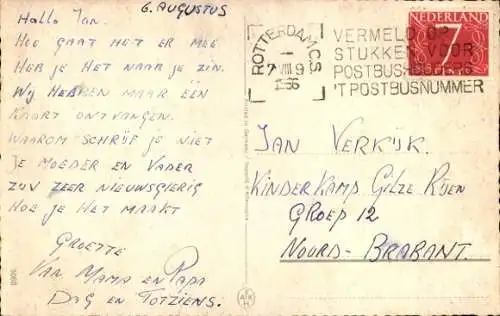 6. AUGUSTUS
Hallo Jan.
HOE GAAT HET ER MEE
HEB JE HET NAAR JE ZIN.
WIJ HEBBEN MAAR EEN
KAART ONTVANGEN.
WAAROM SCHRIJF JE NIET
JE MOEDER EN VADER
ZIJN ZEER NIEUWSGIERIG
HOE JE HET MAAKT
GROETTE
VAN MAMA EN PAPA
DAG EN TOTZIENS.
ROTTERDAM C.S
7 VIII 9
VERMELD OP
STUKKEN VOOR
POSTBUSHOUDERS
'T POSTBUSNUMMER
NEDERLAND
7
JAN VERKIJK.
KINDERKAMP GILZE RIJEN
GROEP 12
NOORD-BRABANT.